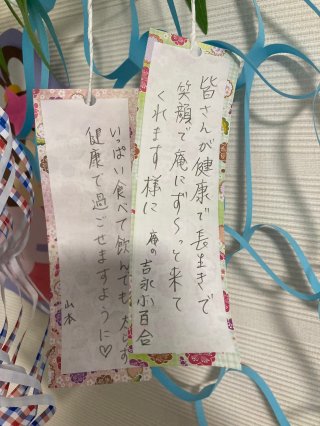 皆さんが健康で長生きで
笑顔で庵にずーっと来て
くれます様に
庵の吉永小百合
いっぱい食べて飲んでも太らず
健康で過ごせますように♡
山本